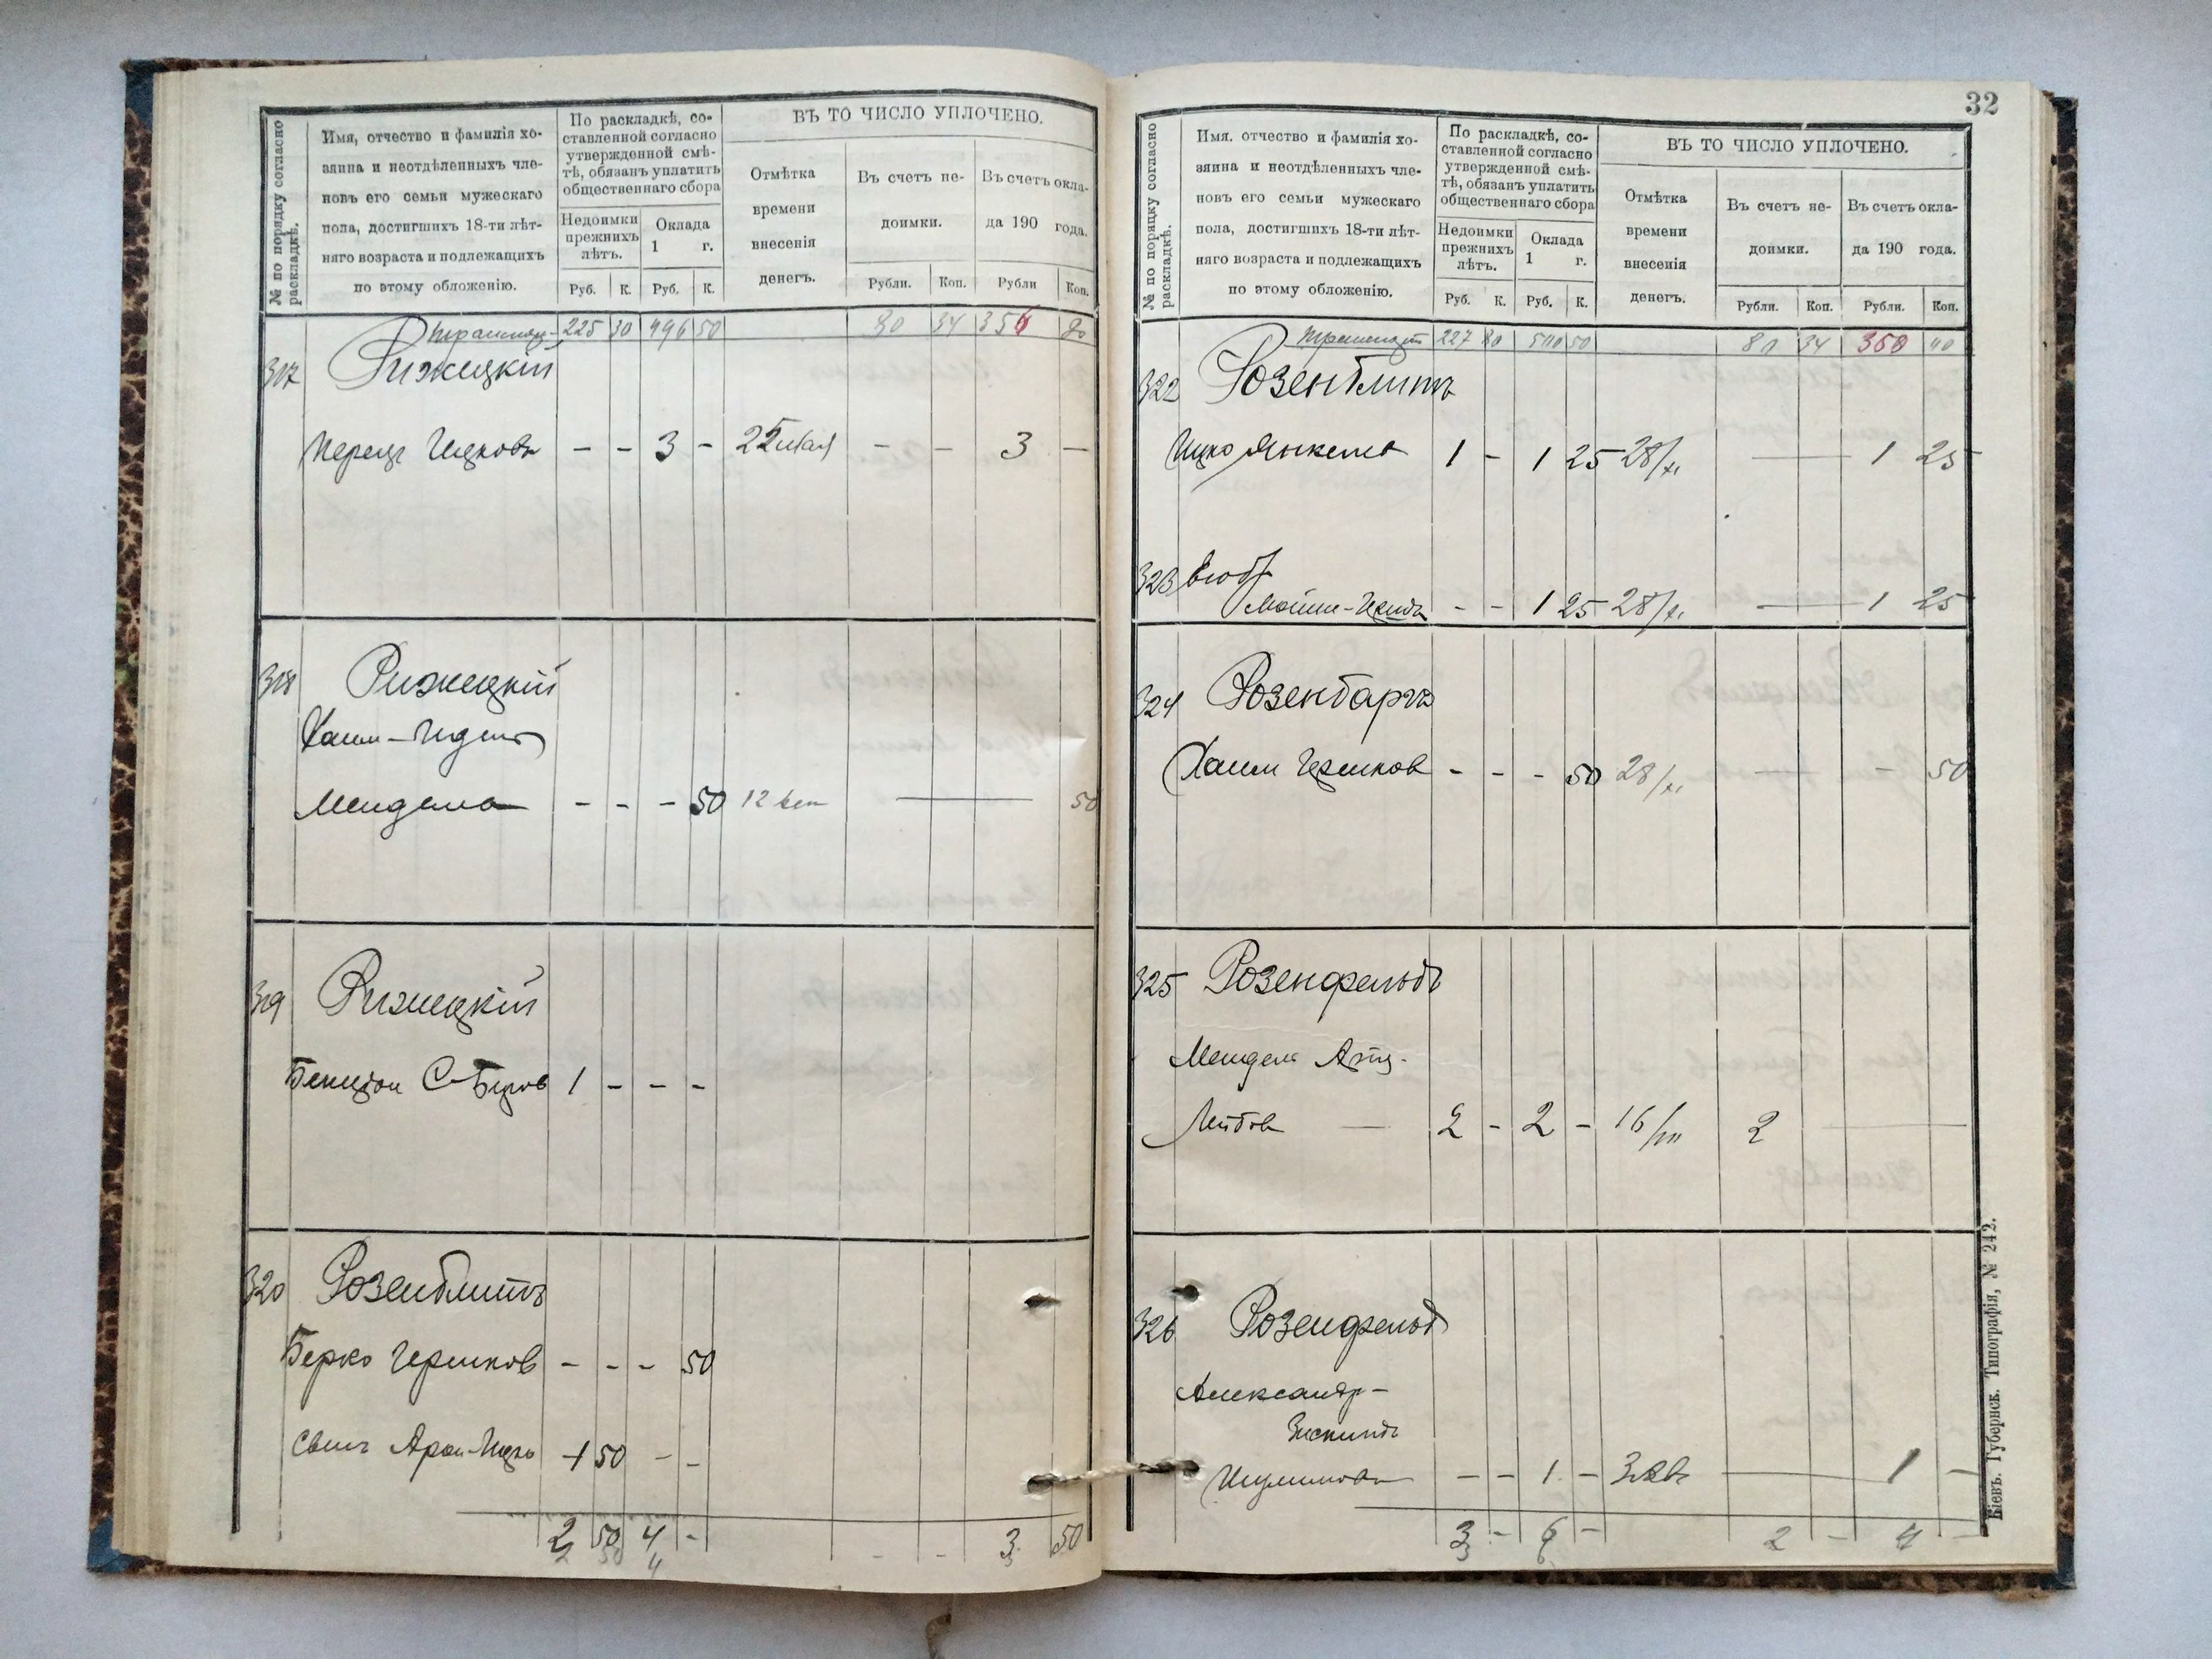 № по порядку согласно раскладкѣ.
Имя, отчество и фамилія хо-
зяина и неотдѣленныхъ чле-
новъ его семьи мужескаго
пола, достигшихъ 18-ти лѣт-
няго возраста и подлежащихъ
по этому обложенію.
По раскладкѣ, со-
ставленной согласно
утвержденной смѣ-
тѣ, обязанъ уплатить
общественнаго сбора
Недоимки
прежнихъ
лѣтъ.
Оклада
1 г.
Руб. К. Руб. К.
ВЪ ТО ЧИСЛО УПЛОЧЕНО.
Отмѣтка
времени
внесенія
денегъ.
Въ счетъ не-
доимки.
Въ счетъ окла-
да 190 года.
Рубли. Коп. Рубли Коп.
225 30 496 50 80 34 356 80
317 Рижецкій
Перецъ Ицковъ - - 3 - 22 мая - - 3 -
318 Рижецкій
Хаим-
Мендела - - - 50 12 50
319 Рижецкій
Бенцион С- 1 - - -
320 Розенблитъ
Берко Гершков - - - 50
Арон-Ицко 1 50 - -
2 50 4 - - - 3 50
32
№ по порядку согласно раскладкѣ.
Имя. отчество и фамилія хо-
зяина и неотдѣленныхъ чле-
новъ его семьи мужескаго
пола, достигшихъ 18-ти лѣт-
няго возраста и подлежащихъ
по этому обложенію.
По раскладкѣ, со-
ставленной согласно
утвержденной смѣ-
тѣ, обязанъ уплатить
общественнаго сбора
Недоимки
прежнихъ
лѣтъ.
Оклада
1 г.
Руб. К. Руб. К.
ВЪ ТО ЧИСЛО УПЛОЧЕНО.
Отмѣтка
времени
внесенія
денегъ.
Въ счетъ не-
доимки.
Въ счетъ окла-
да 190 года.
Рубли. Коп. Рубли. Коп.
227 80 500 50 80 34
322 Розенблитъ
Ицко Янкелев 1 - 1 25 28/XI — 1 25
323
Мошко- - - 1 25 28/XI — 1 25
324 Розенбаргъ
Хаим Гершков - - - 50 28/XI — - 50
325 Розенфельдъ
Мендель
Лейбов — 2 - 2 - 16/VIII 2 —
326 Розенфельд
Александр-
Зискинд
Шулимов - - 1 - — 1 -
3 - 6 - 2 - 4 -
Кіевъ. Губернск. Типографія, № 242.